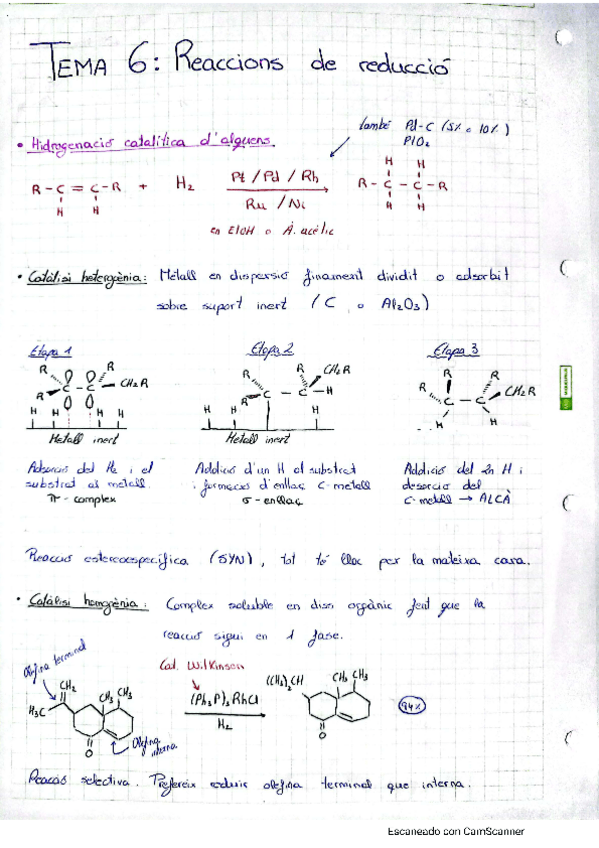 TEMA 6: Reaccions de reducció
• Hidrogenació catalítica d'alquens.
també Pd-C (5% o 10%)
PtO₂
R - C = C - R + H₂ Pt / Pd / Rh R - C - C - R
H H Ru / Ni H H H H
en EtOH o À. acètic
• Catàlisi heterogènia: Metall en dispersió finament dividit o adsorbit
sobre suport inert (C o Al₂O₃)
Etapa 1 Etapa 2 Etapa 3
R R R C C CH₂R H H H H
R R C - C - H CH₂R H H H
R R R C - C CH₂R H H
Metall inert Metall inert
Adsorció del H₂ i el Addició d'un H al substrat Addició del 2n H i
substrat al metall. i formació d'enllaç C-metall desorció del
π - complex σ - enllaç C-metall → ALCÀ
Reacció estereoespecífica (SYN), tot té lloc per la mateixa cara.
• Catàlisi homogènia: Complex soluble en diss orgànic fent que la
reacció sigui en 1 fase.
Olefina terminal
Cat. Wilkinson
CH₂ CH₃ CH₃ H₃C O (Ph₃P)₃RhCl (CH₃)₂CH CH₃ CH₃ O 94%
H₂
Olefina
interna
Reacció selectiva. Prefereix reduir olefina terminal que interna.
Escaneado con CamScanner